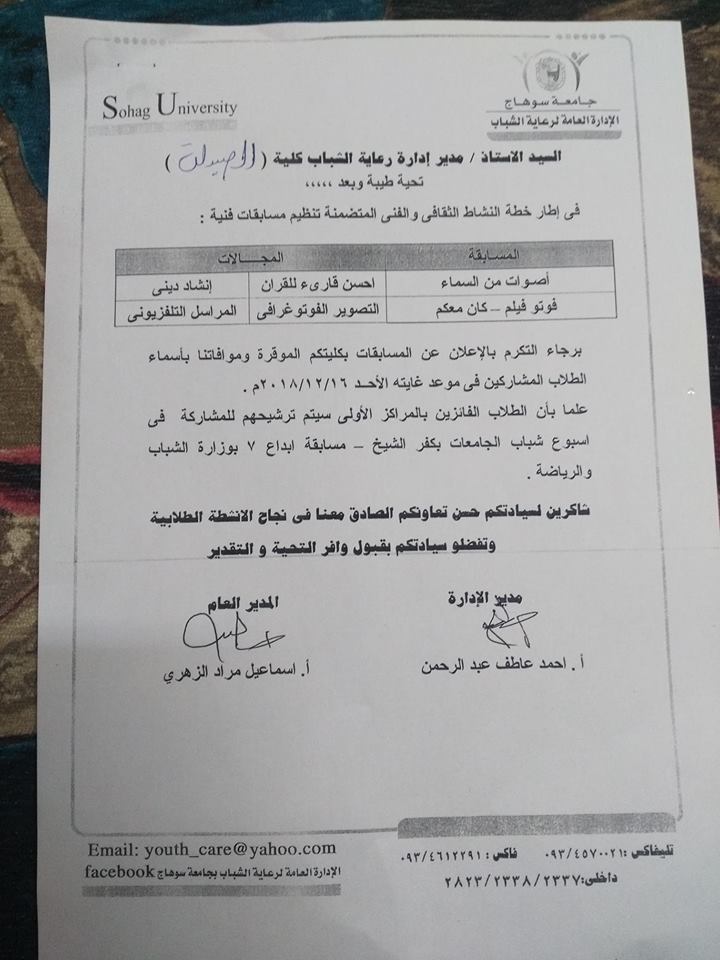 Sohag University
جامعة سوهاج
الإدارة العامة لرعاية الشباب
السيد الاستاذ / مدير إدارة رعاية الشباب كلية ( الصيدلة )
تحية طيبة وبعد ،،،،،
فى إطار خطة النشاط الثقافى والفنى المتضمنة تنظيم مسابقات فنية :
المسابقة المجالات
أصوات من السماء احسن قارىء للقران إنشاد دينى
فوتو فيلم – كان معكم التصوير الفوتوغرافى المراسل التلفزيونى
برجاء التكرم بالإعلان عن المسابقات بكليتكم الموقرة وموافاتنا بأسماء
الطلاب المشاركين فى موعد غايته الأحد ٢٠١٨/١٢/١٦م .
علما بأن الطلاب الفائزين بالمراكز الأولى سيتم ترشيحهم للمشاركة فى
اسبوع شباب الجامعات بكفر الشيخ – مسابقة ابداع ٧ بوزارة الشباب
والرياضة .
شاكرين لسيادتكم حسن تعاونكم الصادق معنا فى نجاح الانشطة الطلابية
وتفضلو سيادتكم بقبول وافر التحية و التقدير
مدير الإدارة المدير العام
أ . احمد عاطف عبد الرحمن أ. اسماعيل مراد الزهري
تليفاكس :٠٩٣/٤٥٧٠٠٢١ فاكس : ٠٩٣/٤٦١٢٢٩١
داخلى:٢٨٢٣/٢٣٣٨/٢٣٣٧
Email: youth_care@yahoo.com
الإدارة العامة لرعاية الشباب بجامعة سوهاج facebook